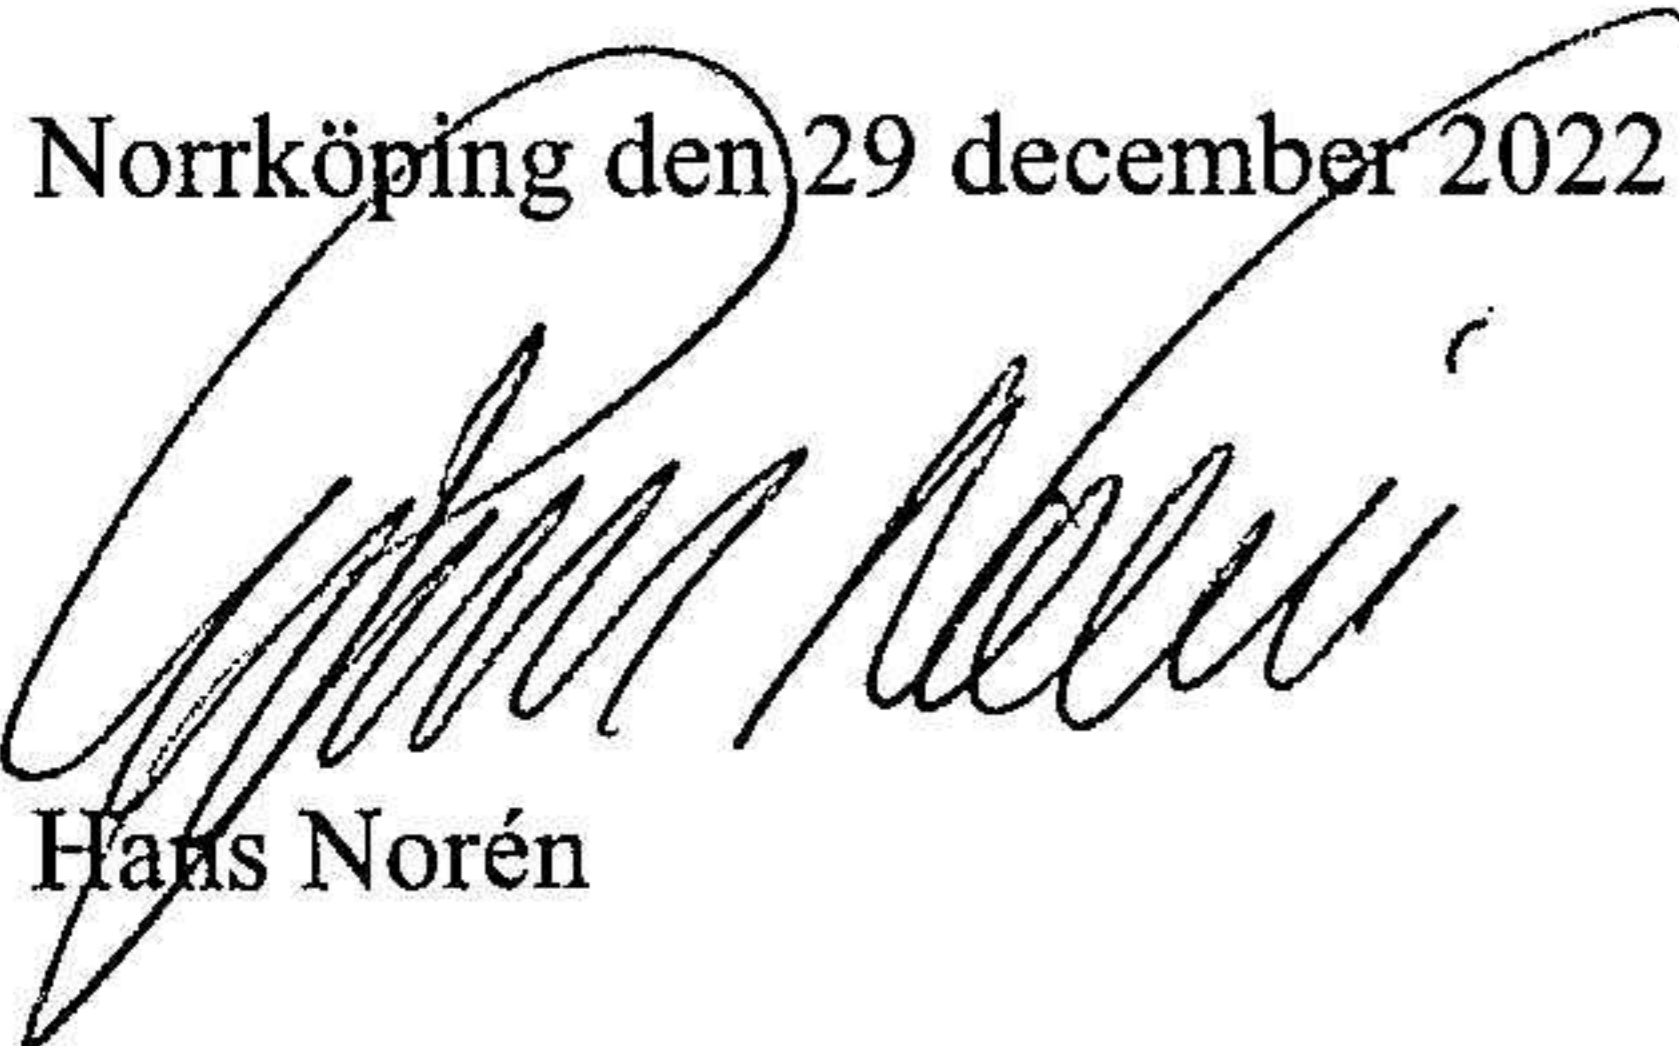 Norrköping den 29 december 2022
Hans Norén